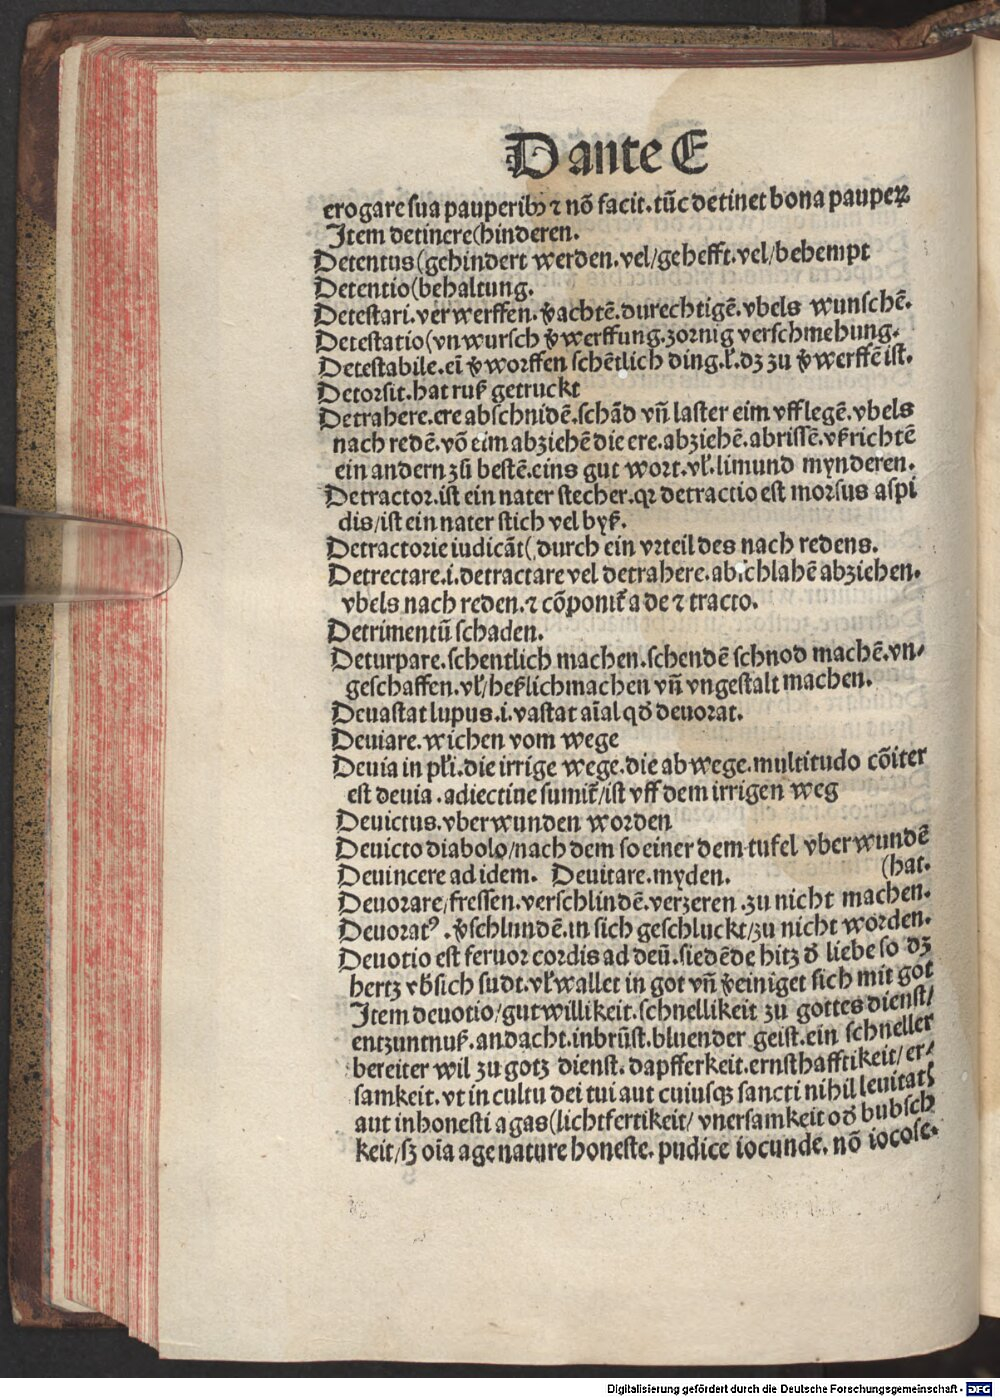 Dante E
erogare sua pauperibꝫ ⁊ nō facit. tūc detinet bona pauperꝝ
Item detinere(hinderen.
Detentus(gehindert werden. vel/gehefft. vel/behempt
Detentio(behaltung.
Detestari. verwerffen. v̓achtē. durechtigē. vbels wunschē.
Detestatio(vnwursch v̓werffung. zornig verschmehung.
Detestabile. eī v̓worffen schētlich ding. ł. dz zu v̓werffē ist.
Detorsit. hat ruß getruckt
Detrahere. ere abschnidē. schād vn̄ laster eim vfflegē. vbels
nach redē. vō eim abziehē die ere. abziehē. abrissē. vꝼrichtē
ein andern zů bestē. eins gut wort. vł. limund mynderen.
Detractor. ist ein nater stecher. qꝛ detractio est morsus aspi
dis/ist ein nater stich vel byß.
Detractorie iudicāt(durch ein vrteil des nach redens.
Detrectare. i. detractare vel detrahere. abschlahē abziehen.
vbels nach reden. ⁊ cōponit̃ a de ⁊ tracto.
Detrimentū schaden.
Deturpare. schentlich machen. schendē schnod machē. vn⸗
geschaffen. vł/heßlichmachen vn̄ vngestalt machen.
Deuastat lupus. i. vastat aīal qđ deuorat.
Deuiare. wichen vom wege
Deuia in płi. die irrige wege. die abwege. multitudo cōiter
est deuia. adiectiue sumit̃/ist vff dem irrigen weg
Deuictus. vberwunden worden
Deuicto diabolo/nach dem so einer dem tufel vberwundē
Deuincere ad idem. Deuitare. myden. (hat.
Deuorare/fressen. verschlindē. verzeren. zu nicht machen.
Deuoratꝰ. v̓schlundē. in sich geschluckt/zu nicht worden.
Deuotio est feruor cordis ad deū. siedēde hitz đ liebe so dz
hertz vb̓sich sudt. vł wallet in got vn̄ v̓einiget sich mit got
Item deuotio/gutwillikeit. schnellikeit zu gottes dienst/
entzuntnuß. andacht. inbrůst. bluender geist. ein schneller
bereiter wil zu gotz dienst. dapfferkeit. ernsthafftikeit/er⸗
samkeit. vt in cultu dei tui aut cuiusqꝫ sancti nihil leuitatꝭ
aut inhonesti agas(lichtfertikeit/ vnersamkeit ođ bubsch
keit/sꝫ oīa age nature honeste. pudice iocunde. nō iocose.
Digitalisierung gefördert durch die Deutsche Forschungsgemeinschaft - DFG